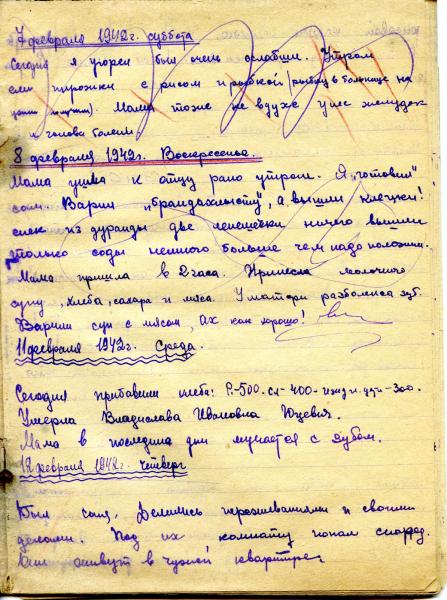 7 февраля 1942г. суббота
Сегодня я угорел был очень ослабши. Утром
ели пирожки с рисом и рыбкой (рыбку в больнице на
ужин получил). Мама тоже не вдухе у нее желудок
и голова болит.
8 февраля 1942г. Воскресенье.
Мама ушла к отцу рано утром. Я "готовил"
сам. Варил "брандахлысту", а вышли клецки!
спек из дуранды две лепешечки ничего вышли
только соды немного больше чем надо положил.
Мама пришла в 2 часа. Принесла молочного
супу, хлеба, сахара и мяса. У матери разболелся зуб.
Варили суп с мясом, Ах как хорошо!
11 февраля 1942г. Среда.
Сегодня прибавили хлеба: Р.-500. сл-400- ижд. и. дет-300.
Умерла Владислава Ивановна Юцевич.
Мама в последние дни мучается с зубом.
12 февраля 1942г. четверг
Был саня, Делились переживаниями и своими
делами. Под их комнату попал снаряд.
Они живут в чужой квартире.